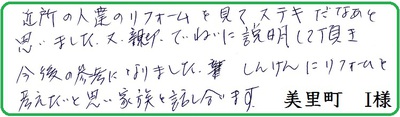 近所の人達のリフォームを見てステキだなあと
思いました.又.親切.ていねいに説明して頂き
今後の参考になりました. しんけんにリフォームを
考えたいと思い家族と話し合います. 美里町 I様